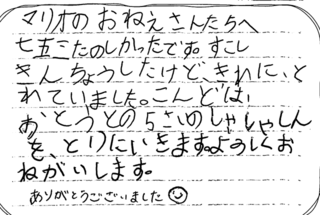 マリオの おねえさんたちへ
七五三たのしかったです。すこし
きんちょうしたけど、きれに、と
れていました。こんどは、
おとうとの5さいのしゃしゃしん
を、とりにいきます。よろしくお
ねがいします。
ありがとうございました